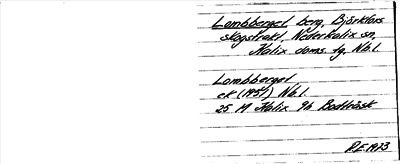 Lombberget berg, Björkfors
skogstrakt, Nederkalix sn,
Kalix doms. tg, Nb.l.
Lombberget
ek (1951) Nb.l.
25 M Kalix 9b Bodträsk
R.E 1973